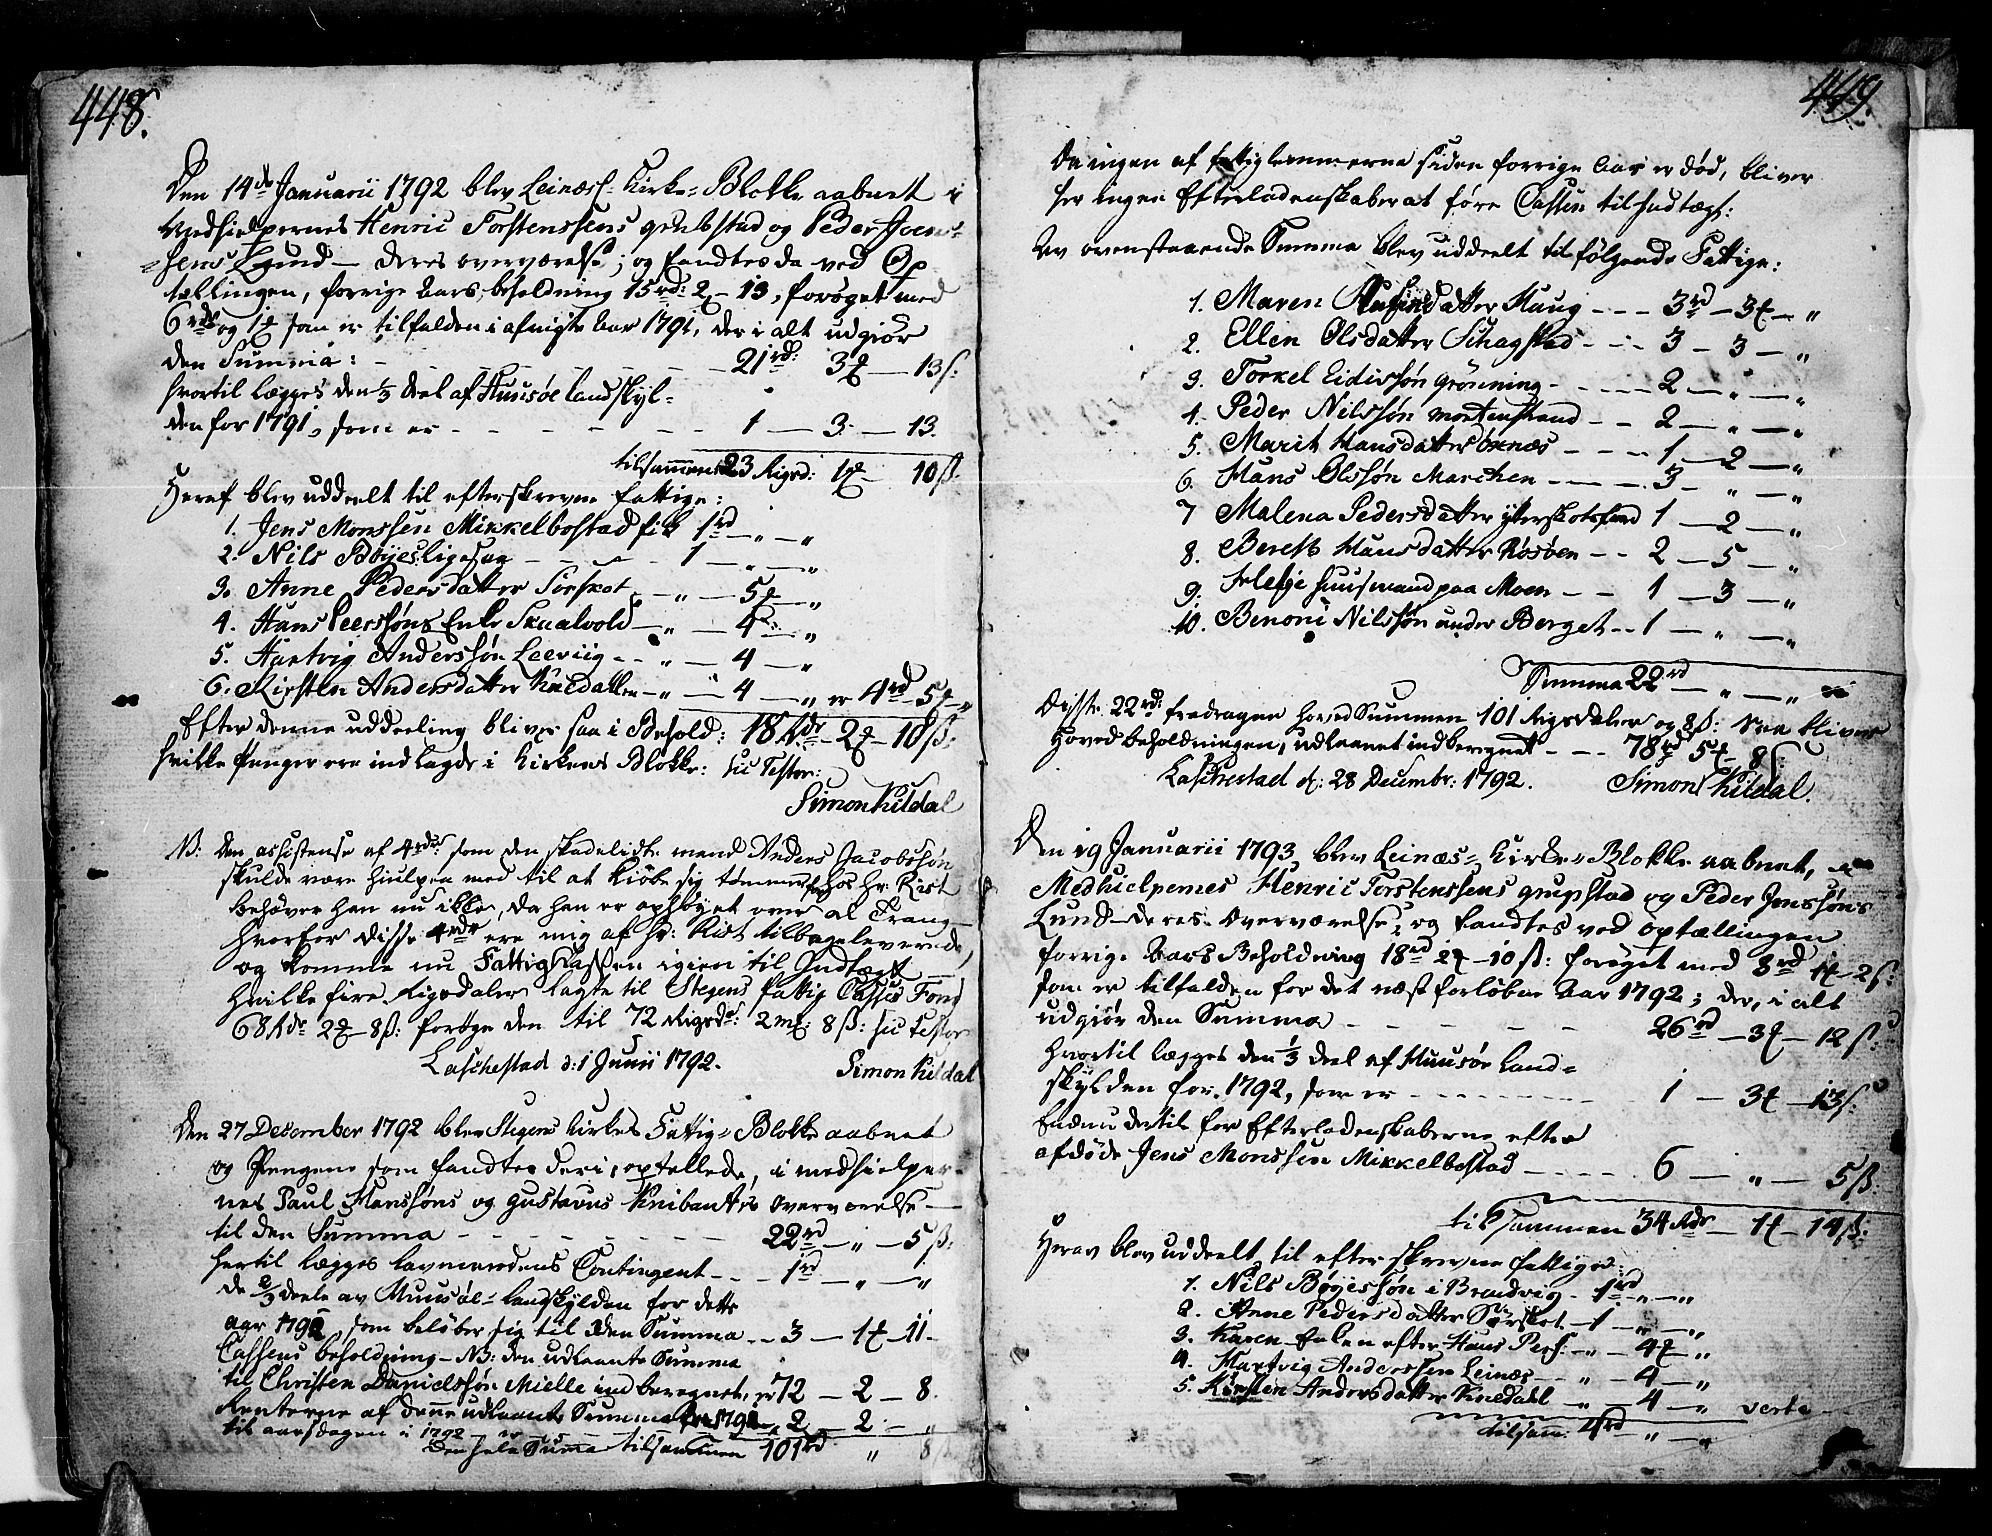 448.
Den 14de Januarii 1792 blev Leinæs Kirke-Blokke aabnet i
Medhielpernes Henric Torstenssens og Peder Joen-
sens Lund deres overværelse; og fandtes da ved Op
tællingen, forrige Aars beholdning 15rd: 2 - 13, forøget med
6rdr og 1 som er tilfalden i afvigte Aar 1791, der i alt udgiør
den Summa: - 21rd: 3 - 13s:
hvortil lægges den 1/3 deel af Huusøe landskyl-
den for 1791, som er - 1 - 3 - 13.
tilsammen 23 Rigsd: 1 - 10ß.
Heraf blev uddeelt til efterskrevne fattige:
1. Jens Monssen Mikkelbostad fik 1rd - " - "
2. Nils Bøyes - 1 - " - "
3. Anne Pedersdatter Sørskot - " - 5 - "
4. Hans Peerssøns Enke Skualvold - " - 4 - "
5. Hartvig Anderssøn - " - 4 - "
6. Kirsten Andersdatter Knedallen - " - 4 - " er 4rd - 5 - "
Efter denne uddeeling bliver saa i Behold: 18 Rdr - 2 - 10ß:
hvilke Penger ere indlagde i Kirkens Blokke: hic Testor:
Simon Kildal
NB: Den assistense af 4rdr: som den skadelidte mand Anders Jacobssøn
skulde være hiulpen med til at kiøbe sig tømmer for hos Hr: Rist
behøver han nu ikke, da han er ophøyet over al Trang
hvorfor disse 4rdr ere mig af Hr: Rist tilbageleverede,
og komme nu Fattigkassen igien til Indtægt
hvilke fire Rigsdaler lagte til Stegens fattig Casses Fond
68 Rdr 2 - 8ß: forøge den til 72 Rigsd: 2 mk: 8 ß: hic testor
Laschestad d: 1 Junii 1792. Simon Kildal
Den 27 December 1792 blev Stegens Kirkes Fattig-Blokke aabnet
og Pengene som fandtes deri, optellede, i medhielper-
nes Paul Hanssøns og Gustavus Knibantes Overværelse
til den Summa - 22rd - " - 5ß:
hertil lægges Lavmændens Contingent - 1rd - " - "
de 2/3 deele av Huusøe-landskylden for dette
aar 1792, som beløber sig til den Summa - 3 - 1 - 11 -
Cassens beholdning - NB: den udlaante Summa
til Christen Danielssøn Mielle indberegnet, er 72 - 2 - 8.
Renterne af denne udlaante Summa for 1792 - 2 - 2 - "
til aarsdagen i 1792 er
Den hele Summa tilsammen 101rd " 8ß
449.
Da ingen af fattiglemmerne siden forrige Aar er død, bliver
her ingen Efterladenskaber at føre Cassen til Indtægt:
Av ovenstaaende Summa blev uddeelt til følgende Fattige:
1. Maren datter Haug - 3rd - 3 - "
2. Ellen Olsdatter Schagstad - 3 - 3 - "
3. Torkel Eidissøn Grønning - 2 - " - "
4. Peder Nilssøn Mortenstrand - 2 - " - "
5. Marit Hansdatter Øxnæs - 1 - 2 - "
6. Hans Olssøn Marchen - 3 - " - "
7 Malena Pedersdatter 1 - 2 - "
8. Bereth Hansdatter Røsøen - 2 - 5 - "
9. huusmand paa Moen - 1 - 3 - "
10. Benoni Nilssøn under Berget - 1 - " - "
Summa 22rd - " - "
Disse 22rd: fradragen hoved Summen 101 Rigsdaler og 8ß: saa bliver
Hovedbeholdningen, udlaanet indberegnet - 78rd 5 - 8ß:
Laschestad d: 28 Decembr: 1792. Simon Kildal.
Den 19 Januarii 1793 blev Leinæs-Kirkes Blokke aabnet,
Medhielpernes Henric Torstenssens og Peder Jenssøns
Lund deres Overværelse, og fandtes ved optællingen
forrige Aars Beholdning 18rd 2 - 10 ß: forøget med 8rd 1 - 2ß:
som er tilfalden for det næst forløbne Aar 1792; der, i alt
udgiør den Summa - 26rd - 3 - 12 ß:
Hvortil lægges den 1/3 deel af Huusøe land-
skylden for 1792, som er - 1 - 3 - 13ß:
Endnu dertil for Efterladenskaberne efter
afdøde Jens Monssen Mikkelbostad - 6 - " - 5ß.
tilsammen 34 Rdr - 1 - 14ß:
Herav blev uddeelt til efterskrevne fattige:
1. Nils Bøyessøn i Brendvig - 1rd - " - "
2. Anne Pedersdatter Sørskot - 1 - " - "
3. Karen Enken efter Hans Pers: - " - 4 - "
4. Hartvig Anderssen Leinæs - " - 4 - "
5. Kirsten Andersdatter Knedahl - " - 4 - " verte
tilsam: 4rd - " - "